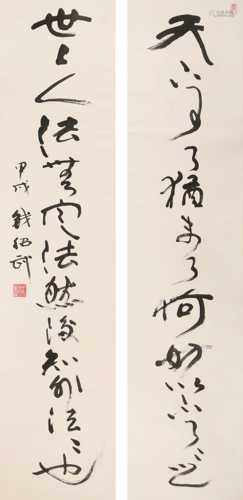 天下事了猶未了何妨以不了了之
世上人法無定法然後知非法法也
甲戌 錢紹武